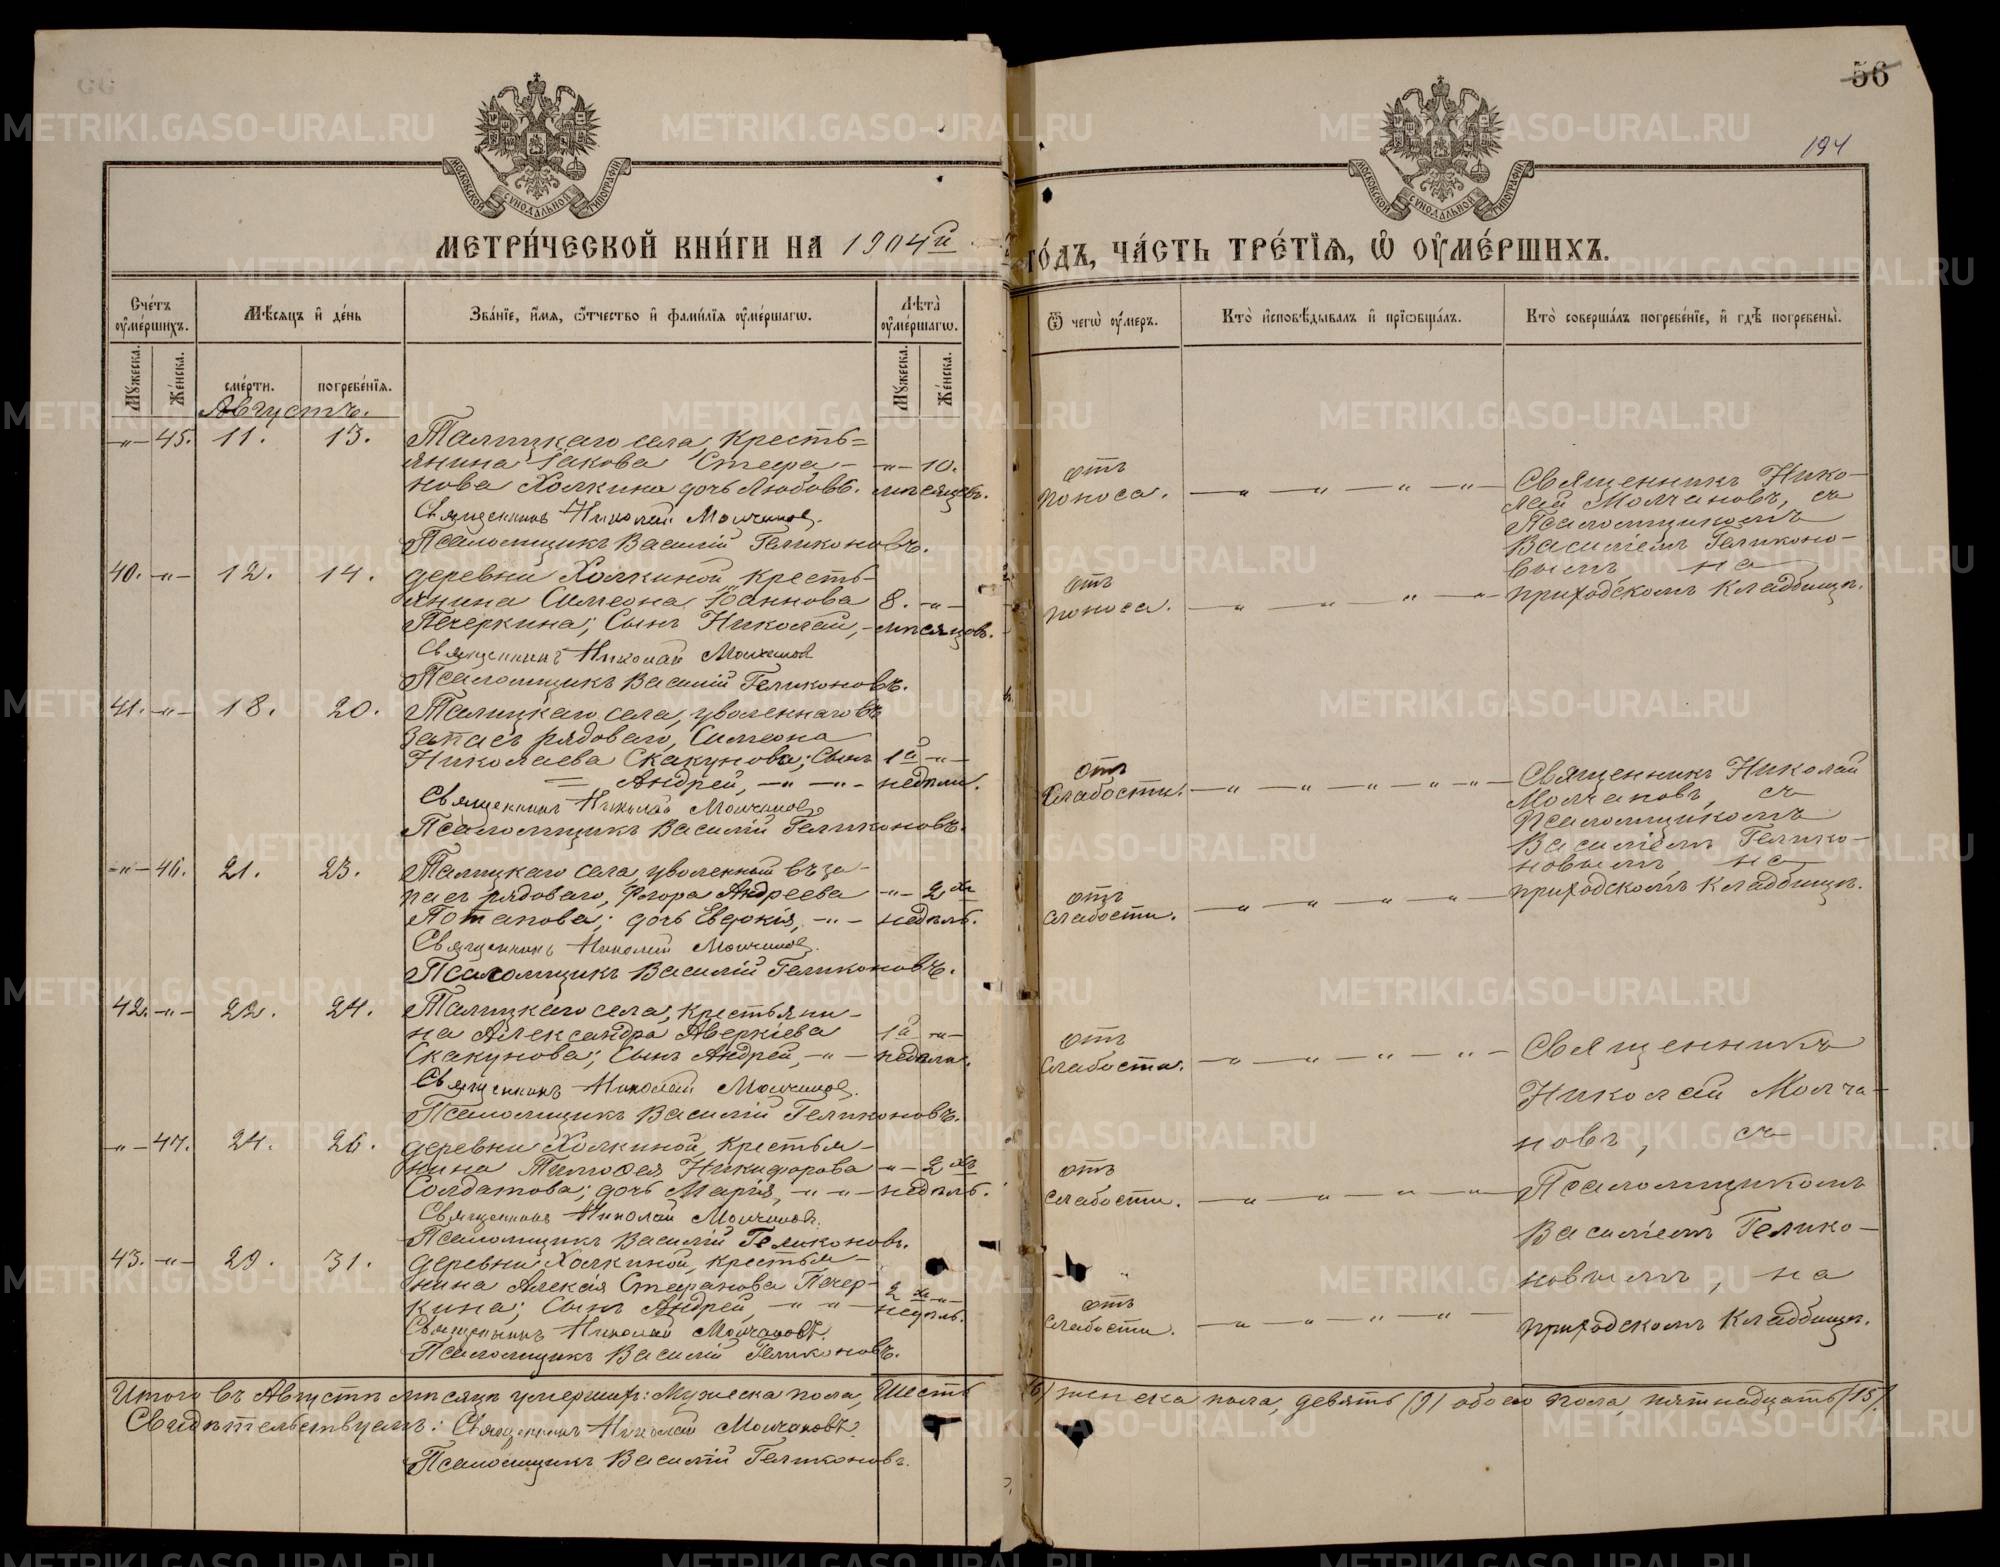 56
194
МОСКОВСКОЙ СУНОДАЛЬНОЙ ТИПОГРАФІИ
МОСКОВСКОЙ СУНОДАЛЬНОЙ ТИПОГРАФІИ
МЕТРИ́ЧЕСКОЙ КНИ́ГИ НА 1904й
ГО́ДЪ, ЧА́СТЬ ТРЕ́ТІѦ, Ѡ ОУМЕ́РШИХЪ.
Сче́тъ оуме́ршихъ.
Мѣсяцъ и де́нь
Зва́ніе, и́мя, ѻ́тчество и фами́лія оуме́ршагѡ.
Лѣта̀ оуме́ршагѡ.
Ѿ чегѡ̀ оу́меръ.
Кто̀ исповѣ́дывалъ и пріѡбща́лъ.
Кто̀ соверша́лъ погребе́ніе, и гдѣ̀ погребены̀.
Му́жеска.
Же́нска.
сме́рти.
погребе́нія.
Му́жеска.
Же́нска.
Августъ.
-"- 45. 11. 13. Талицкаго села, Кресть=
янина Іакова Стефа- -"- 10.
нова Холкина дочь Любовь. мѣсяцевъ.
Священникъ Николай Молчановъ.
Псаломщикъ Василій Геликоновъ.
отъ
поноса.
Священникъ Нико-
лай Молчановъ, съ
Псаломщикомъ
Василіемъ Геликоно-
вымъ на
приходскомъ кладбищѣ.
40. -"- 12. 14. деревни Холкиной, кресть-
янина Симеона Іоаннова 8. -"-
Печеркина; сынъ Николай, - мѣсяцовъ.
Священникъ Николай Молчановъ
Псаломщикъ Василій Геликоновъ.
отъ
поноса.
41. -"- 18. 20. Талицкаго села, уволеннаго въ
запасъ рядоваго, Симеона
Николаева Скакунова; сынъ 1й -"-
= Андрей, -"- -"- недѣли.
Священникъ Николай Молчановъ
Псаломщикъ Василій Геликоновъ.
отъ
слабости.
Священникъ Николай
Молчановъ, съ
Псаломщикомъ
Василіемъ Гелико-
новымъ на
приходскомъ кладбищѣ.
-"- 46. 21. 23. Талицкаго села, уволенный въ за-
пасъ рядоваго, Флора Андреева -"- 2хъ
Потапова; дочь Евдокія, -"- недѣль.
Священникъ Николай Молчановъ.
Псаломщикъ Василій Геликоновъ.
отъ
слабости.
42. -"- 22. 24. Талицкаго села, крестьяни-
на Александра Аверкіева 1й -"-
Скакунова; сынъ Андрей, -"- недѣли.
Священникъ Николай Молчановъ.
Псаломщикъ Василій Геликоновъ.
отъ
слабости.
Священникъ
Николай Молча-
новъ, съ
Псаломщикомъ
Василіемъ Гелико-
новымъ, на
приходскомъ кладбищѣ.
-"- 47. 24. 26. деревни Холкиной, крестья-
нина Тимоѳея Никифорова -"- 2хъ
Солдатова; дочь Марія, -"- -"- недѣль.
Священникъ Николай Молчановъ.
Псаломщикъ Василій Геликоновъ.
отъ
слабости.
43. -"- 29. 31. деревни Холкиной, крестья-
нина Алексія Стефанова Печер- 2хъ -"-
кина; сынъ Андрей, -"- -"- недѣль.
Священникъ Николай Молчановъ.
Псаломщикъ Василій Геликоновъ.
отъ
слабости.
Итого въ Августѣ мѣсяцѣ умершихъ: Мужеска пола, Шесть (6) женска пола, девять (9) обоего пола, пятнадцать (15).
Свидѣтельствуемъ: Священникъ Николай Молчановъ.
Псаломщикъ Василій Геликоновъ.
METRIKI.GASO-URAL.RU